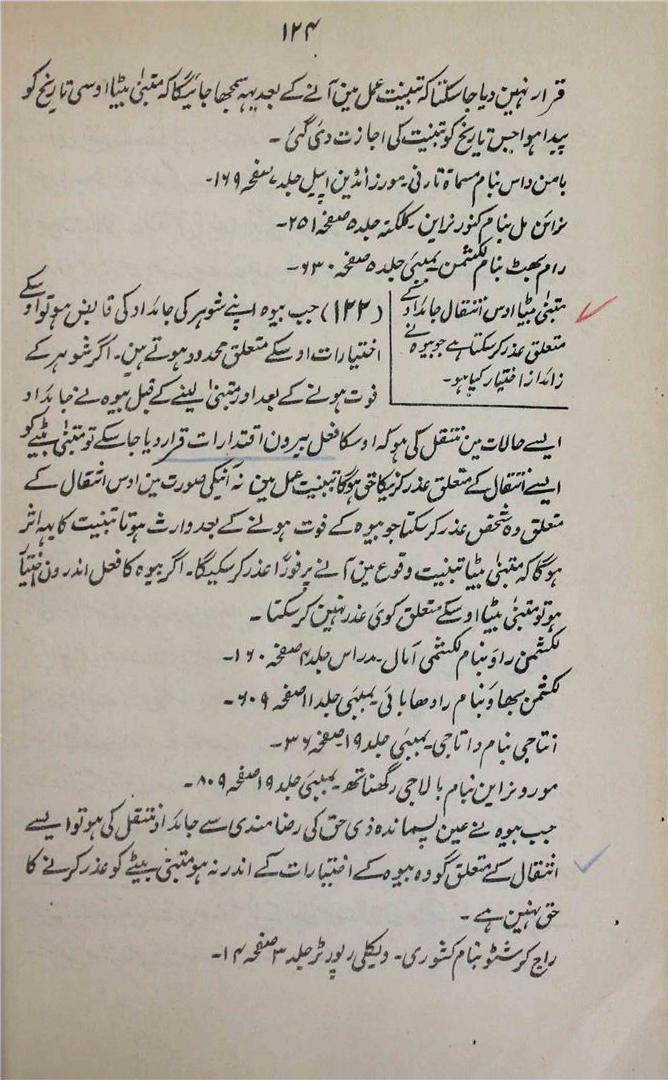 ۱۲۴
قرار نہین دیا جا سکتا کہ تبنیت عمل مین آنے کے بعد یہہ سمجھا جائیگا کہ متبنیٰ بیٹا اوسی تاریخ کو
پیدا ہوا جس تاریخ کو تبنیت کی اجازت دی گئی ۔
بامن داس بنام مسماۃ تارنی ۔ مورز انڈین اپیل جلد ۷ صفحہ ۱۶۹۔
نرائن مل بنام کنور نراین ۔ کلکتہ جلد ۵ صفحہ ۲۵۱۔
رام بھٹ بنام لکشمن ۔ بمبئی جلد ۵ صفحہ ۶۳۰۔
متبنیٰ بیٹا اوس انتقال جائداد کے
متعلق عذر کر سکتا ہے جو بیوہ نے
زائد از اختیار کیا ہو ۔
(۱۲۲) جب بیوہ اپنے شوہر کی جائداد کی قابض ہو تو اوسکے
اختیارات اوسکے متعلق محدود ہوتے ہین ۔ اگر شوہر کے
فوت ہونے کے بعد اور متبنیٰ لینے کے قبل بیوہ نے جایداد
ایسے حالات مین منتقل کی ہو کہ اوسکا فعل بیرون اقتدارات قرار دیا جا سکے تو متبنیٰ بیٹے کو
ایسے انتقال کے متعلق عذر کرنیکا حق ہوگا تبنیت عمل مین نہ آنیکی صورت مین اوس انتقال کے
متعلق وہ شخص عذر کر سکتا جو بیوہ کے فوت ہونے کے بعد وارث ہوتا تبنیت کا یہہ اثر
ہوگا کہ متبنیٰ بیٹا تبنیت وقوع مین آنے پر فوراً عذر کر سکیگا ۔ اگر بیوہ کا فعل اندرون اختیار
ہو تو متبنیٰ بیٹا اوسکے متعلق کوئی عذر نہین کر سکتا ۔
لکشمن راؤ بنام لکشمی امال ۔ مدراس جلد ۴ صفحہ ۱۶۰۔
لکشمن بھاؤ بنام رادھا بائی ۔ بمبئی جلد ۱۱ صفحہ ۶۰۹۔
انتاجی بنام داتاجی ۔ بمبئی جلد ۱۹ صفحہ ۳۶۔
مورو نراین بنام بالاجی رگھناتھ ۔ بمبئی جلد ۱۹ صفحہ ۸۰۹۔
جب بیوہ نے عین پسماندہ ذی حق کی رضامندی سے جائداد منتقل کی ہو تو ایسے
انتقال کے متعلق گو وہ بیوہ کے اختیارات کے اندر نہ ہو متبنیٰ بیٹے کو عذر کرنے کا
حق نہین ہے ۔
راج کرشٹو بنام کشوری ۔ ویکلی رپورٹر جلد ۳ صفحہ ۱۴۔